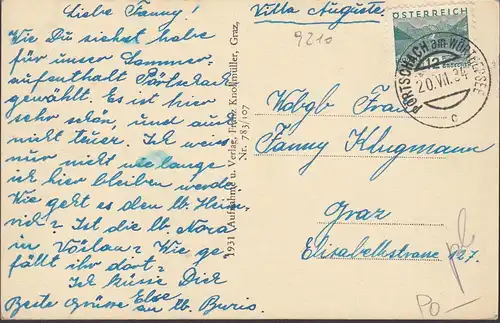 Liebe Fanny!
Wie Du siehst habe
für unser Sommer-
aufenthalt Pörtschach
gewählt. Es ist hier
sehr schön, und auch
nicht teuer. Ich weiss
nur nicht wie lange
ich hier bleiben werde.
Wie geht es den lb. Hein-
rich? Ist die lb. Nora
in Vöslau? Wie ge-
fällt ihr dort?
Ich küsse Dich
Else
Beste Grüsse an lb. Buris.
1931 Aufnahme u. Verlag, Franz Knollmüller, Graz,
Nr. 783/107
Villa Auguste.
9210
ÖSTERREICH
12
PÖRTSCHACH am WÖRTHERSEE
20.VII.34
c
Frau
Fanny Klugmann
Graz
Elisabethstrasse 127.
Po —